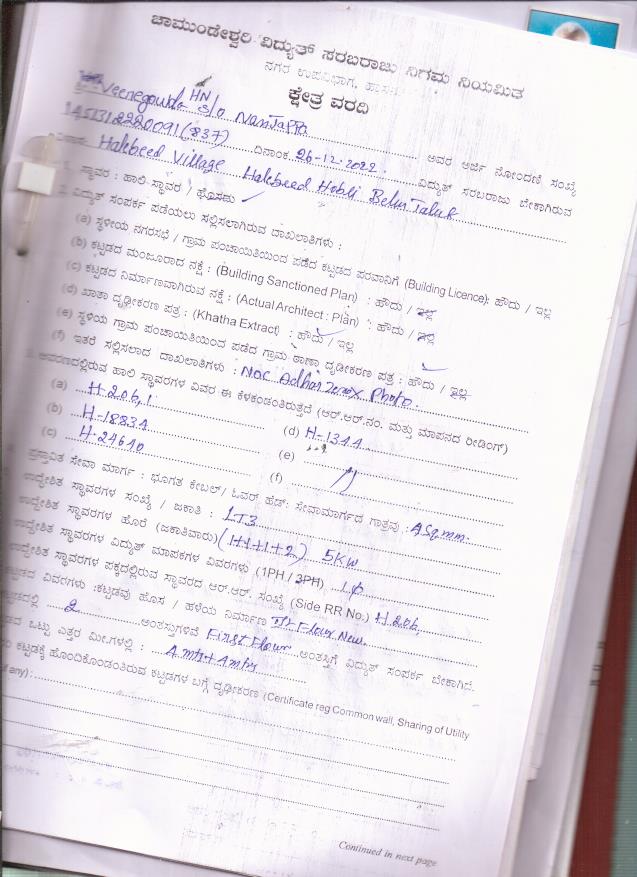 ಚಾಮುಂಡೇಶ್ವರಿ ವಿದ್ಯುತ್ ಸರಬರಾಜು ನಿಗಮ ನಿಯಮಿತ
ನಗರ ಉಪವಿಭಾಗ, ಹಾಸನ
ಕ್ಷೇತ್ರ ವರದಿ
Veenegowda HN S/o Nanjappa ಅವರ ಅರ್ಜಿ ನೋಂದಣಿ ಸಂಖ್ಯೆ
1451312220091(837) ದಿನಾಂಕ 26-12-2022 ವಿದ್ಯುತ್ ಸರಬರಾಜು ಬೇಕಾಗಿರುವ
Halebeed Village Halebeed Hobli Belur Taluk
1. ಸ್ಥಾವರ : ಹಾಲಿ ಸ್ಥಾವರ / ಹೊಸದು
2. ವಿದ್ಯುತ್ ಸಂಪರ್ಕ ಪಡೆಯಲು ಸಲ್ಲಿಸಲಾಗಿರುವ ದಾಖಲಾತಿಗಳು :
(a) ಸ್ಥಳೀಯ ನಗರಸಭೆ / ಗ್ರಾಮ ಪಂಚಾಯಿತಿಯಿಂದ ಪಡೆದ ಕಟ್ಟಡದ ಪರವಾನಿಗೆ (Building Licence): ಹೌದು / ಇಲ್ಲ
(b) ಕಟ್ಟಡದ ಮಂಜೂರಾದ ನಕ್ಷೆ : (Building Sanctioned Plan) : ಹೌದು / ಇಲ್ಲ
(c) ಕಟ್ಟಡದ ನಿರ್ಮಾಣವಾಗಿರುವ ನಕ್ಷೆ : (Actual Architect : Plan) : ಹೌದು / ಇಲ್ಲ
(d) ಖಾತಾ ದೃಢೀಕರಣ ಪತ್ರ : (Khatha Extract) : ಹೌದು / ಇಲ್ಲ
(e) ಸ್ಥಳಿಯ ಗ್ರಾಮ ಪಂಚಾಯಿತಿಯಿಂದ ಪಡೆದ ಗ್ರಾಮ ಠಾಣಾ ದೃಢೀಕರಣ ಪತ್ರ : ಹೌದು / ಇಲ್ಲ
(f) ಇತರೆ ಸಲ್ಲಿಸಲಾದ ದಾಖಲಾತಿಗಳು : NOC Adhar Zerox Photo.
ಆವರಣದಲ್ಲಿರುವ ಹಾಲಿ ಸ್ಥಾವರಗಳ ವಿವರ ಈ ಕೆಳಕಂಡಂತಿರುತ್ತದೆ (ಆರ್.ಆರ್.ನಂ. ಮತ್ತು ಮಾಪನದ ರೀಡಿಂಗ್)
(a) H-206,1 (d) H-1344
(b) H-18834 (e)
(c) H-24640 (f)
ಪ್ರಸ್ತಾವಿತ ಸೇವಾ ಮಾರ್ಗ : ಭೂಗತ ಕೇಬಲ್ / ಓವರ್ ಹೆಡ್: ಸೇವಾಮಾರ್ಗದ ಗಾತ್ರವು : 4Sq.mm.
ಉದ್ದೇಶಿತ ಸ್ಥಾವರಗಳ ಸಂಖ್ಯೆ / ಜಕಾತಿ : LT3
ಉದ್ದೇಶಿತ ಸ್ಥಾವರಗಳ ಹೊರೆ (ಜಕಾತಿವಾರು) (1+1+1+2) 5KW
ಉದ್ದೇಶಿತ ಸ್ಥಾವರಗಳ ವಿದ್ಯುತ್ ಮಾಪಕಗಳ ವಿವರಗಳು (1PH / 3PH) 1ϕ
ಉದ್ದೇಶಿತ ಸ್ಥಾವರಗಳ ಪಕ್ಕದಲ್ಲಿರುವ ಸ್ಥಾವರದ ಆರ್.ಆರ್. ಸಂಖ್ಯೆ (Side RR No.) H 206,
ಕಟ್ಟಡದ ವಿವರಗಳು :ಕಟ್ಟಡವು ಹೊಸ / ಹಳೆಯ ನಿರ್ಮಾಣ Flour New.
2 ಅಂತಸ್ತುಗಳಿವೆ First Flour ಅಂತಸ್ತಿಗೆ ವಿದ್ಯುತ್ ಸಂಪರ್ಕ ಬೇಕಾಗಿದೆ.
ಒಟ್ಟು ಎತ್ತರ ಮೀ.ಗಳಲ್ಲಿ : 4mtr+4mtr
ಕಟ್ಟಡಕ್ಕೆ ಹೊಂದಿಕೊಂಡಂತಿರುವ ಕಟ್ಟಡಗಳ ಬಗ್ಗೆ ದೃಢೀಕರಣ (Certificate reg Common wall, Sharing of Utility
any) :
Continued in next page